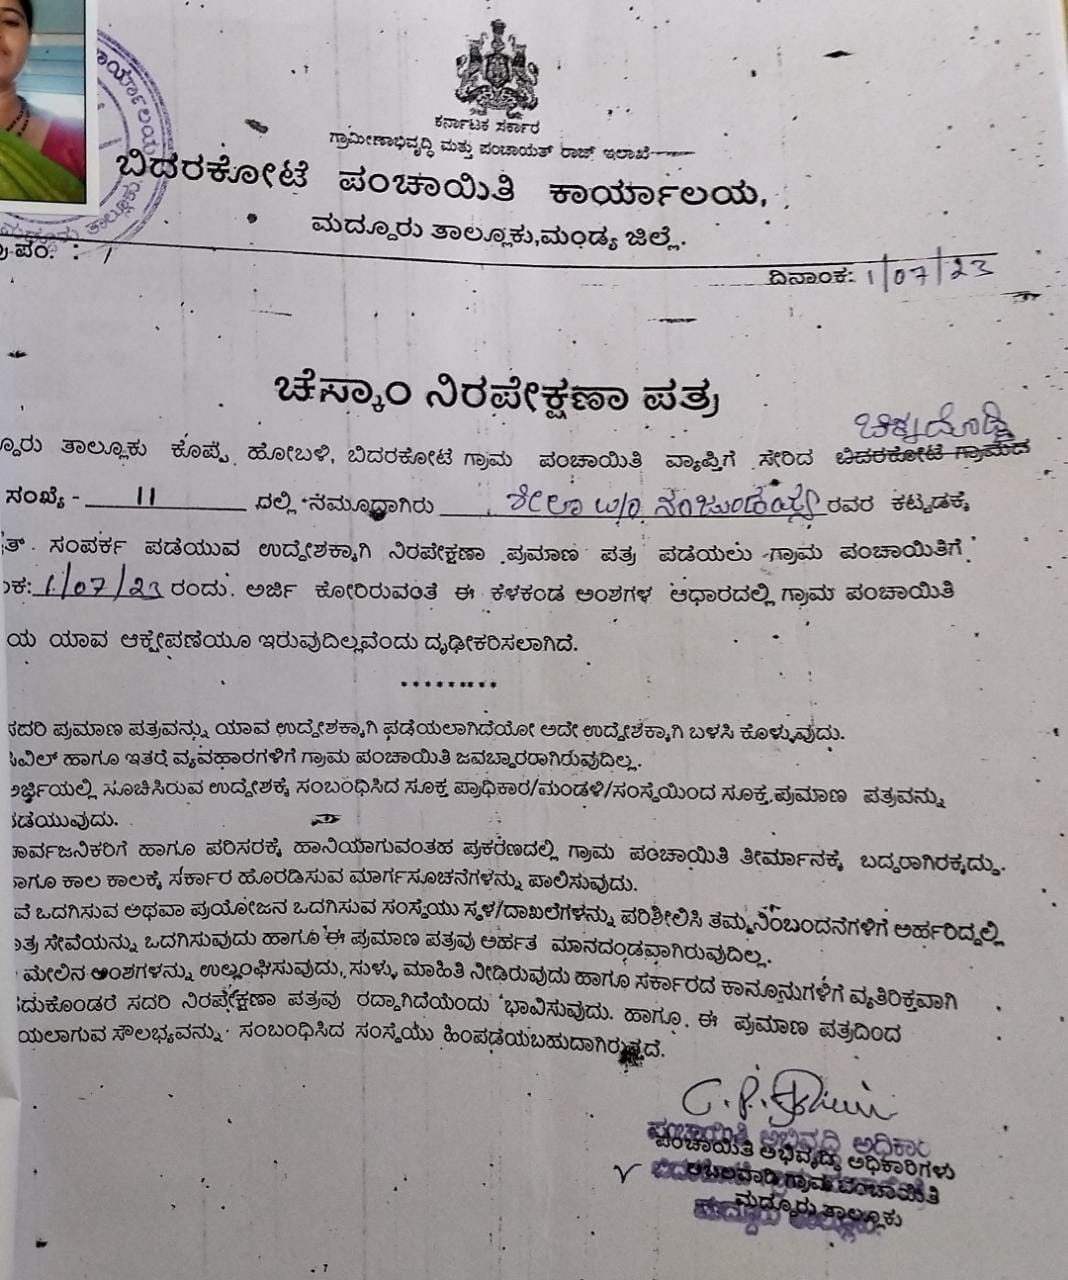 ಕರ್ನಾಟಕ ಸರ್ಕಾರ
ಗ್ರಾಮೀಣಾಭಿವೃದ್ಧಿ ಮತ್ತು ಪಂಚಾಯತ್ ರಾಜ್ ಇಲಾಖೆ
ಬಿದರಕೋಟೆ ಪಂಚಾಯಿತಿ ಕಾರ್ಯಾಲಯ,
ಮದ್ದೂರು ತಾಲ್ಲೂಕು,ಮಂಡ್ಯ ಜಿಲ್ಲೆ.
ದಿನಾಂಕ: 1/07/23
ಚೆಸ್ಕಾಂ ನಿರಪೇಕ್ಷಣಾ ಪತ್ರ
ಚಿಕ್ಕದೊಡ್ಡಿ
ತಾಲ್ಲೂಕು ಕೊಪ್ಪ ಹೋಬಳಿ, ಬಿದರಕೋಟೆ ಗ್ರಾಮ ಪಂಚಾಯಿತಿ ವ್ಯಾಪ್ತಿಗೆ ಸೇರಿದ ಬಿದರಕೋಟೆ ಗ್ರಾಮದ
ಸಂಖ್ಯೆ- 11 ದಲ್ಲಿ ನಮೂದಾಗಿರು ಶೀಲಾ w/o ನಂಜುಂಡಯ್ಯ ರವರ ಕಟ್ಟಡಕ್ಕೆ
ಸಂಪರ್ಕ ಪಡೆಯುವ ಉದ್ದೇಶಕ್ಕಾಗಿ ನಿರಪೇಕ್ಷಣಾ ಪ್ರಮಾಣ ಪತ್ರ ಪಡೆಯಲು ಗ್ರಾಮ ಪಂಚಾಯಿತಿಗೆ
1/07/23 ರಂದು. ಅರ್ಜಿ ಕೋರಿರುವಂತೆ ಈ ಕೆಳಕಂಡ ಅಂಶಗಳ ಆಧಾರದಲ್ಲಿ ಗ್ರಾಮ ಪಂಚಾಯಿತಿ
ಯ ಯಾವ ಆಕ್ಷೇಪಣೆಯೂ ಇರುವುದಿಲ್ಲವೆಂದು ದೃಢೀಕರಿಸಲಾಗಿದೆ.
*********
ಸದರಿ ಪ್ರಮಾಣ ಪತ್ರವನ್ನು ಯಾವ ಉದ್ದೇಶಕ್ಕಾಗಿ ಪಡೆಯಲಾಗಿದೆಯೋ ಅದೇ ಉದ್ದೇಶಕ್ಕಾಗಿ ಬಳಸಿ ಕೊಳ್ಳುವುದು.
ಹಾಗೂ ಇತರೆ ವ್ಯವಹಾರಗಳಿಗೆ ಗ್ರಾಮ ಪಂಚಾಯಿತಿ ಜವಬ್ದಾರರಾಗಿರುವುದಿಲ್ಲ.
ಅರ್ಜಿಯಲ್ಲಿ ಸೂಚಿಸಿರುವ ಉದ್ದೇಶಕ್ಕೆ ಸಂಬಂಧಿಸಿದ ಸೂಕ್ತ ಪ್ರಾಧಿಕಾರ/ಮಂಡಳಿ/ಸಂಸ್ಥೆಯಿಂದ ಸೂಕ್ತ ಪ್ರಮಾಣ ಪತ್ರವನ್ನು
ಪಡೆಯುವುದು.
ಸಾರ್ವಜನಿಕರಿಗೆ ಹಾಗೂ ಪರಿಸರಕ್ಕೆ ಹಾನಿಯಾಗುವಂತಹ ಪ್ರಕರಣದಲ್ಲಿ ಗ್ರಾಮ ಪಂಚಾಯಿತಿ ತೀರ್ಮಾನಕ್ಕೆ ಬದ್ಧರಾಗಿರಕ್ಕದ್ದು.
ಹಾಗೂ ಕಾಲ ಕಾಲಕ್ಕೆ ಸರ್ಕಾರ ಹೊರಡಿಸುವ ಮಾರ್ಗಸೂಚನೆಗಳನ್ನು ಪಾಲಿಸುವುದು.
ಒದಗಿಸುವ ಅಥವಾ ಪ್ರಯೋಜನ ಒದಗಿಸುವ ಸಂಸ್ಥೆಯು ಸ್ಥಳ/ದಾಖಲೆಗಳನ್ನು ಪರಿಶೀಲಿಸಿ ತಮ್ಮ ನಿಂಬಂದನೆಗಳಿಗೆ ಅರ್ಹರಿದ್ದಲ್ಲಿ
ಸೇವೆಯನ್ನು ಒದಗಿಸುವುದು ಹಾಗೂ ಈ ಪ್ರಮಾಣ ಪತ್ರವು ಅರ್ಹತ ಮಾನದಂಡವಾಗಿರುವುದಿಲ್ಲ.
ಮೇಲಿನ ಅಂಶಗಳನ್ನು ಉಲ್ಲಂಘಿಸುವುದು, ಸುಳ್ಳು ಮಾಹಿತಿ ನೀಡಿರುವುದು ಹಾಗೂ ಸರ್ಕಾರದ ಕಾನೂನುಗಳಿಗೆ ವ್ಯತಿರಿಕ್ತವಾಗಿ
ಸದರಿ ನಿರಪೇಕ್ಷಣಾ ಪತ್ರವು ರದ್ದಾಗಿದೆಯೆಂದು ಭಾವಿಸುವುದು. ಹಾಗೂ ಈ ಪ್ರಮಾಣ ಪತ್ರದಿಂದ
ಯಲಾಗುವ ಸೌಲಭ್ಯವನ್ನು ಸಂಬಂಧಿಸಿದ ಸಂಸ್ಥೆಯು ಹಿಂಪಡೆಯಬಹುದಾಗಿರುತ್ತದೆ.
ಪಂಚಾಯಿತಿ ಅಭಿವೃದ್ಧಿ ಅಧಿಕಾರಿಗಳು
ಗ್ರಾಮ ಪಂಚಾಯಿತಿ
ಮದ್ದೂರು ತಾಲ್ಲೂಕು